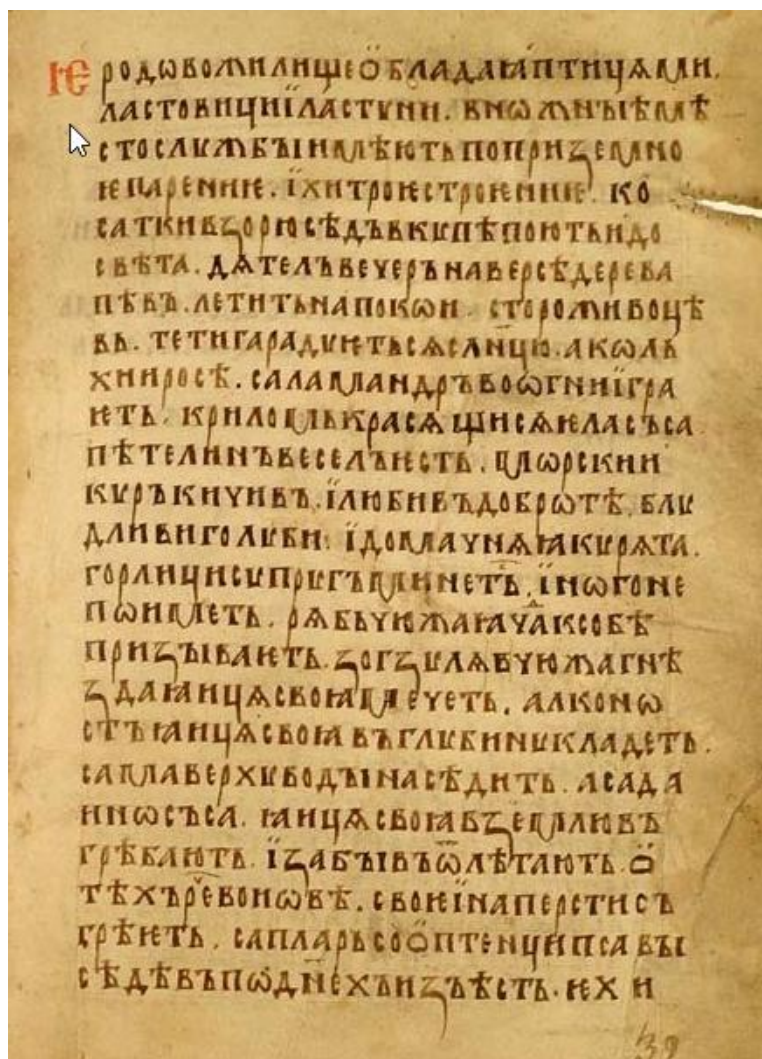 Ѥродѡвожилищеѻбладаѥ҄птицѧми.
ластовициїластꙋни. внѡжныѣмѣ
стослꙋжбыимѣютьпоприземно
ѥпарениѥ. їхитроѥстроѥниѥ. ко
саткивзорюсѣдъвкꙋпѣпоютьидо
свѣта. дѧтелъвечеръваверсѣдерева
пѣвъ. летитьнапокѡи. стороживоцѣ
въ. тетигарадꙋѥтьсѧслн҃цю. акѡль
хниросѣ. саламандръвоѡгниїгра
ѥть. крилоmькрасѧщисѧѥласъса
пѣтелинъвеселъѥсть. мѡрскии
кꙋръкичивъ. їлюбивъдобрѡтѣ. блꙋ
дливиголꙋби. їдомачнѧꙗкꙋрѧта.
горлицисꙋпригъminеть. їнѡгоне
пѡиметь. рѧбьчюжаꙗчѧ҄ксобѣ
призываѥть. зогзꙋлѧвчюжагнѣ
здаꙗицѧсвоꙗмечеть. алконѡ
стъꙗицѧсвоꙗвъглꙋбинꙋкладеть.
самаверхꙋводынасѣдить. асада
инѡсъса. ꙗицѧсвоꙗвземлювъ
грѣбають. їзабывъѿлѣтають. ѻ
тѣхър҄евоиѡвъ. своѥїнаперстисъ
грѣѥть. самларьсоѻптенциипсавы
сѣдѣвъпѡдн҃ехъизъѣсть. ѥхи
39